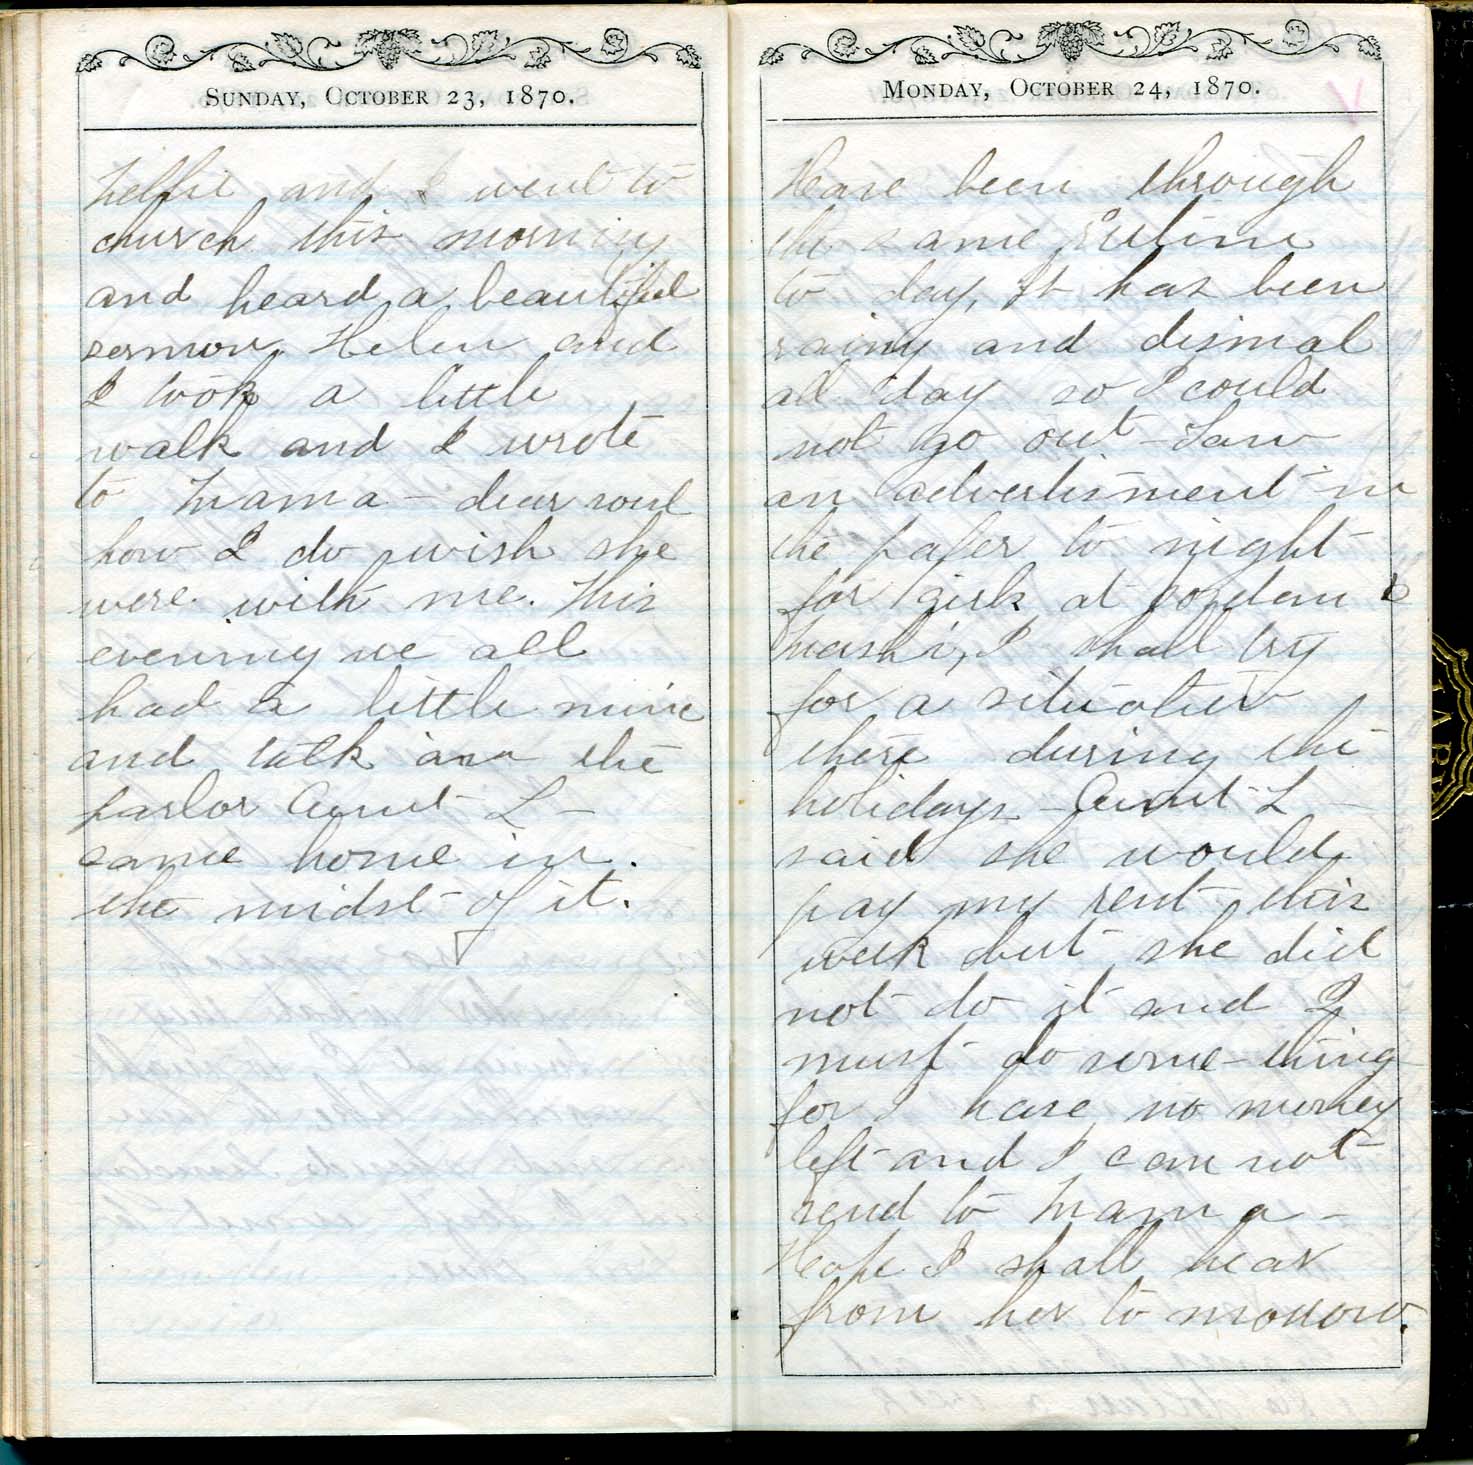 SUNDAY, OCTOBER 23, 1870.
Nellie and I went to
church this morning
and heard a beautiful
sermon. Helen and
I took a little
walk and I wrote
to Mama - dear soul
how I do wish she
were with me. This
evening we all
had a little
and talk in the
parlor Aunt L -
came home in
the midst of it.
MONDAY, OCTOBER 24, 1870.
Have been through
the same
to day, It has been
rainy and dismal
all day so I could
not go out - Saw
an advertisment in
the paper to night
for girls at
I shall try
for a
there during the
holidays - Aunt L -
said she would
pay my rent this
week but she did
not do it and I
must do some-thing
for I have no money
left and I can not
send to Mama -
Hope I shall hear
from her to morrow.